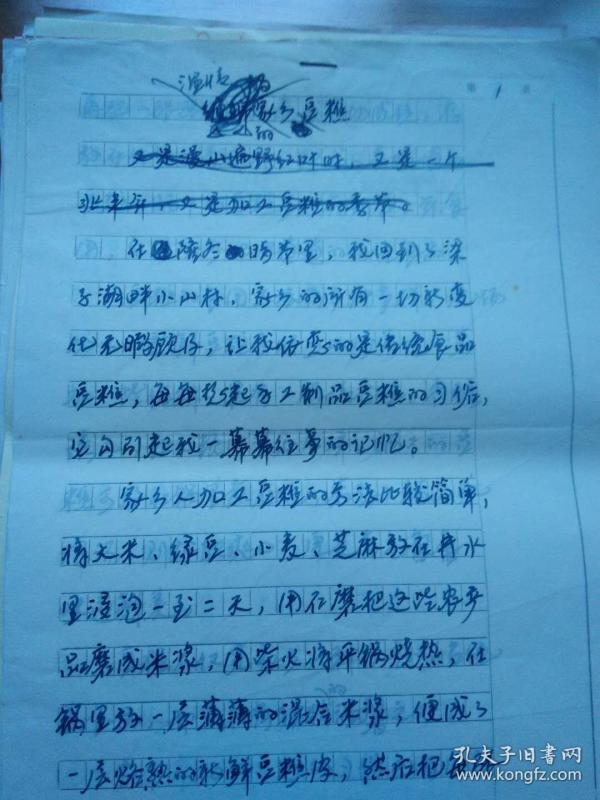 温情的
家乡豆粑
的
第 1 页
又是漫山遍野红叶时，又是一个
年，又是加工豆粑的季节。
在隆冬时节里，我回到了梁
子湖畔小山村，家乡的所有一切新变
化无暇顾及，让我依恋的是传统食品
豆粑，每每提起手工制品豆粑的习俗，
它勾引起我一幕幕往事的记忆。
家乡人加工豆粑的方法比较简单，
将大米、绿豆、小麦、芝麻放在井水
里浸泡一到二天，用石磨把这些农产
品磨成米浆，用柴火将平锅烧热，在
锅里放一层薄薄的混合米浆，便成了
一层烙熟的新鲜豆粑皮，然后把
孔夫子旧书网
www.kongfz.com